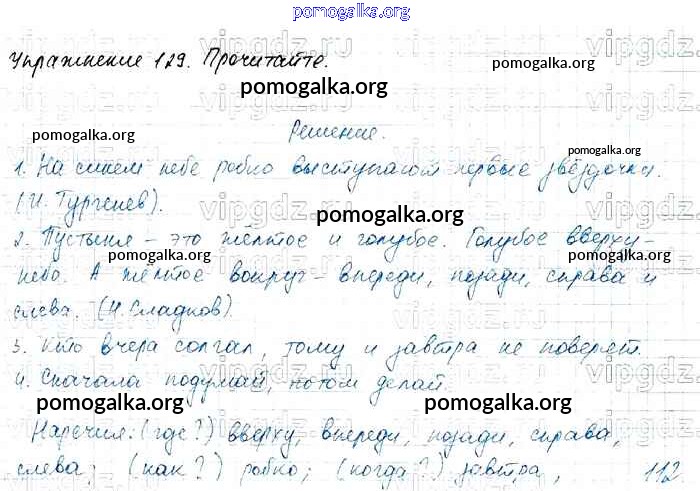 pomogalka.org
Упражнение 129. Прочитайте.
pomogalka.org
pomogalka.org
pomogalka.org
pomogalka.org
Решение.
pomogalka.org
1. На синем небе робко выступают первые звёздочки.
(И. Тургенев).
pomogalka.org
2. Пустыня – это жёлтое и голубое. Голубое вверху –
pomogalka.org
pomogalka.org
небо. А жёлтое вокруг – впереди, позади, справа и
слева. (Н. Сладков).
3. Кто вчера солгал, тому и завтра не поверят.
4. Сначала подумай, потом делай.
pomogalka.org
pomogalka.org
Наречия: (где?) вверху, впереди, позади, справа,
слева; (как?) робко; (когда?) завтра,
112